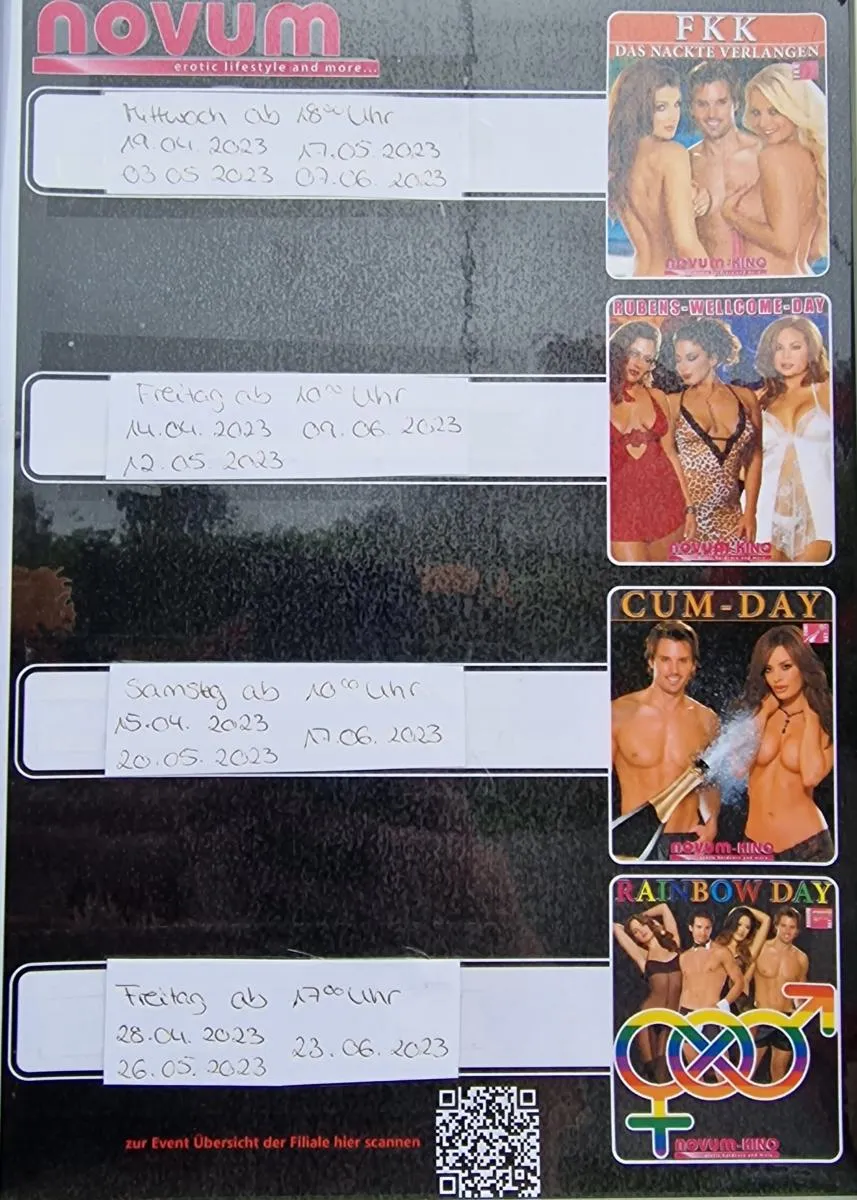 novum
erotic lifestyle and more...
FKK
DAS NACKTE VERLANGEN
NOVUM-KINO
Mittwoch ab 18⁰⁰ Uhr
19.04. 2023 17.05. 2023
03 05 2023 07.06. 2023
RUBENS-WELLCOME-DAY
NOVUM-KINO
Freitag ab 10⁰⁰ Uhr
14.04. 2023 09.06. 2023
12.05. 2023
CUM-DAY
NOVUM-KINO
Samstag ab 10⁰⁰ Uhr
15.04. 2023
17.06. 2023
20.05. 2023
RAINBOW DAY
NOVUM-KINO
Freitag ab 17⁰⁰ Uhr
28.04. 2023
23.06. 2023
26.05. 2023
zur Event Übersicht der Filiale hier scannen